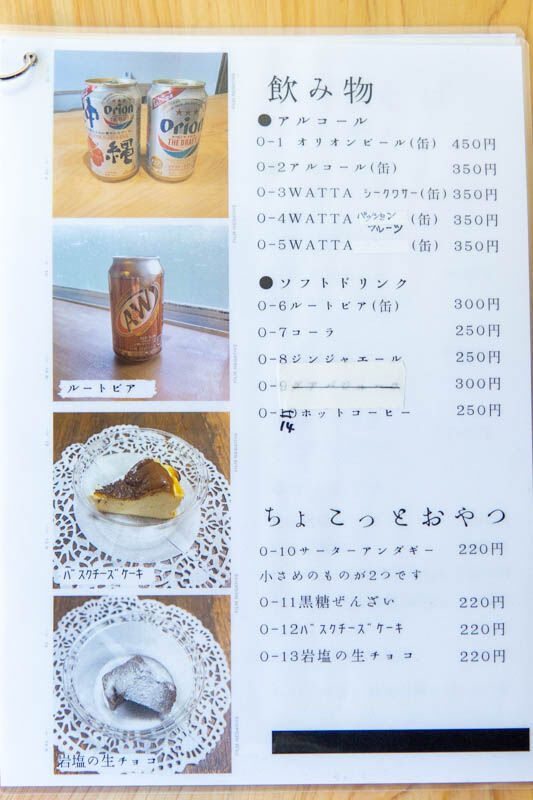 飲み物
●アルコール
O-1 オリオンビール(缶) 450円
O-2アルコール(缶) 350円
O-3WATTA シークワサー(缶) 350円
O-4WATTA パッションフルーツ (缶) 350円
O-5WATTA (缶) 350円
●ソフトドリンク
O-6ルートビア(缶) 300円
O-7コーラ 250円
O-8ジンジャエール 250円
O-9 300円
O-14ホットコーヒー 250円
ちょこっとおやつ
O-10サーターアンダギー 220円
小さめのものが2つです
O-11黒糖ぜんざい 220円
O-12バスクチーズケーキ 220円
O-13岩塩の生チョコ 220円
Orion
沖縄
Orion
THE DRAFT
A&W
ルートビア
バスクチーズケーキ
岩塩の生チョコ